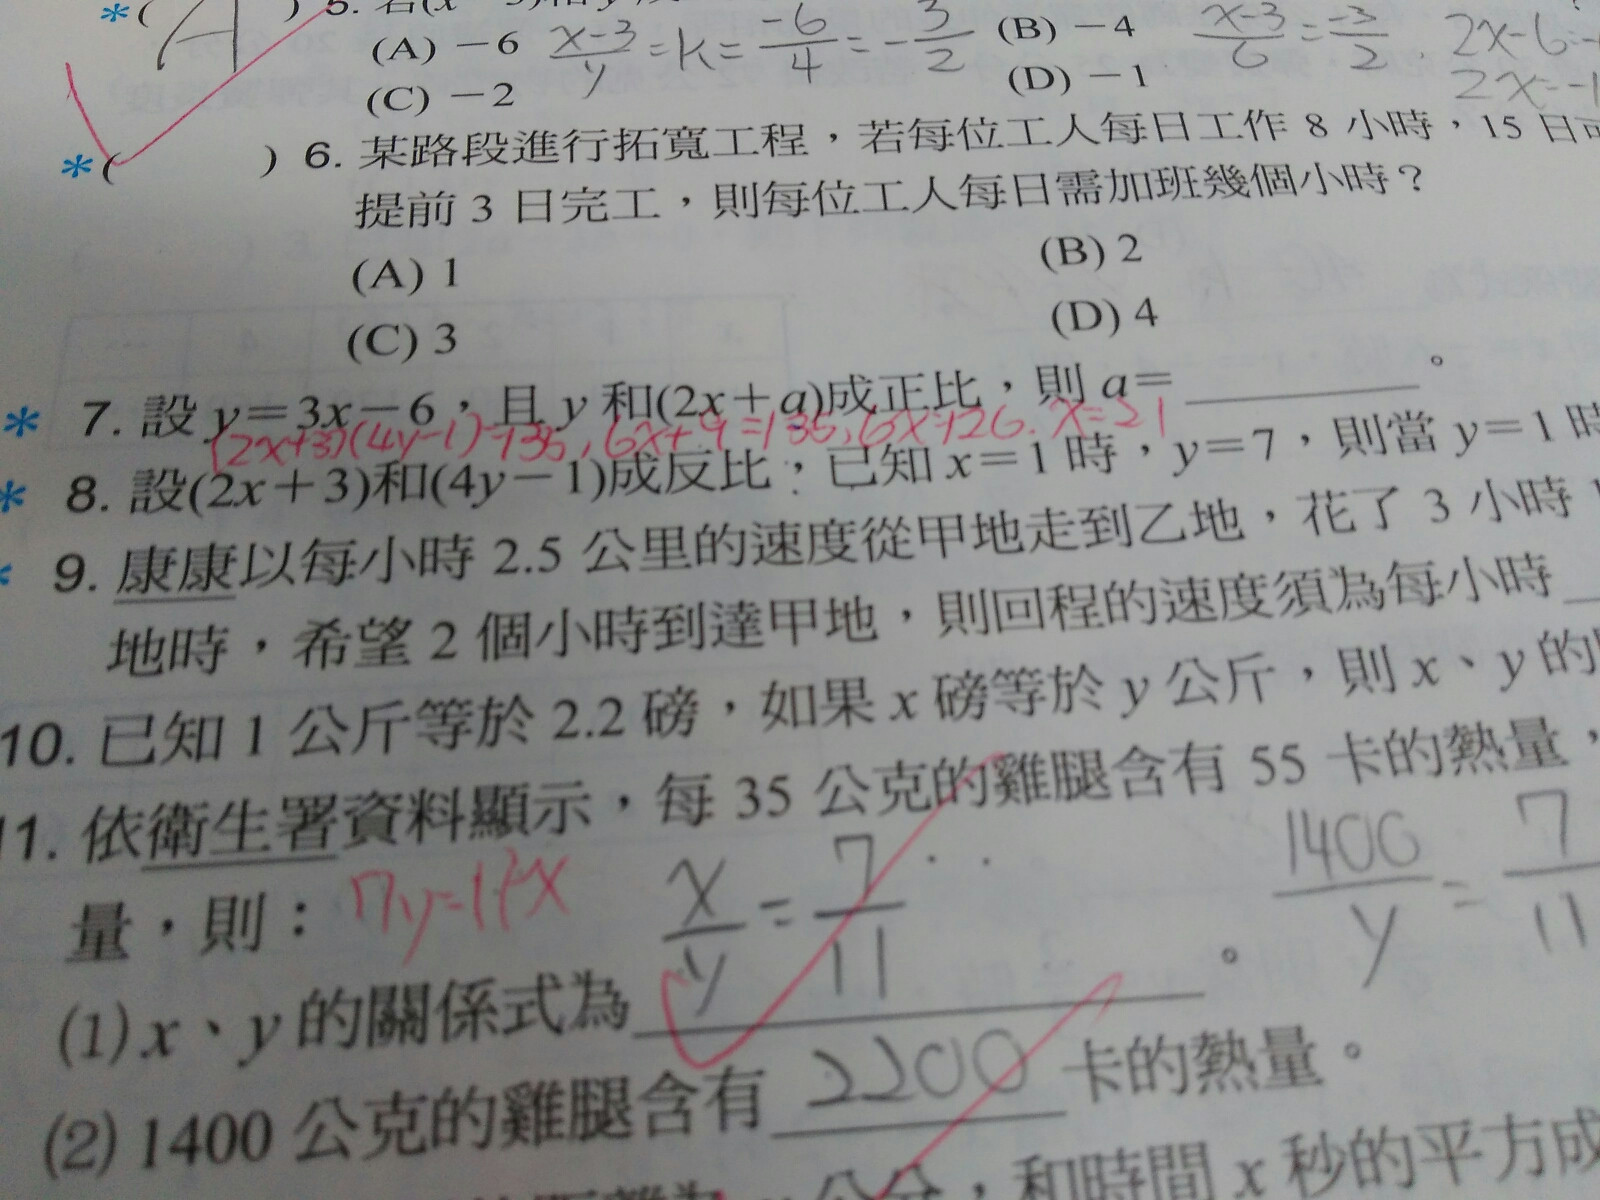 *( A ) 5.
(A) －6 x-3/y = k = -6/4 = -3/2 (B) －4 x-3/6 = -3/2 . 2x-6=-
(C) －2 (D) －1 2x=-1
*( ) 6. 某路段進行拓寬工程，若每位工人每日工作 8 小時，15 日可
提前 3 日完工，則每位工人每日需加班幾個小時？
(A) 1 (B) 2
(C) 3 (D) 4
* 7. 設 y＝3x－6，且 y 和(2x＋a)成正比，則 a＝________。
(2x+3)(4y-1)=135, 6x+9=135, 6x=126. x=21
* 8. 設(2x＋3)和(4y－1)成反比，已知 x＝1 時，y＝7，則當 y＝1 時
* 9. 康康以每小時 2.5 公里的速度從甲地走到乙地，花了 3 小時
地時，希望 2 個小時到達甲地，則回程的速度須為每小時
10. 已知 1 公斤等於 2.2 磅，如果 x 磅等於 y 公斤，則 x、y 的
11. 依衛生署資料顯示，每 35 公克的雞腿含有 55 卡的熱量，
量，則： 7y=11x 1400/y = 7/11
(1) x、y 的關係式為 x/y = 7/11 。
(2) 1400 公克的雞腿含有 2200 卡的熱量。
公分，和時間 x 秒的平方成